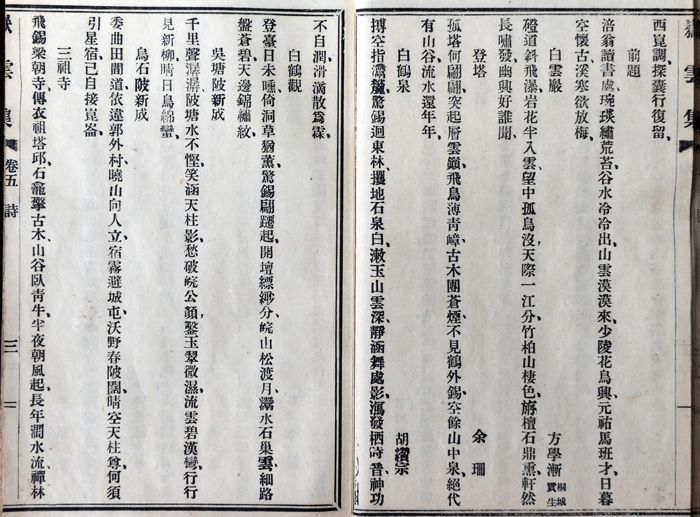 嶽雲集
西崑調探囊行復留
前題
涪翁讀書處琬琰繡荒苔谷水泠泠出山雲漠漠來少陵花鳥興元祐馬班才日暮
空懷古溪寒欲放梅
白雲巖
方學漸 桐城貢生
磴道斜飛瀑岩花半入雲望中孤鳥沒天際一江分竹柏山棲色旃檀石鼎熏軒然
長嘯發幽興好誰聞
登塔
余珊
孤塔何翩翩突起層雲巔飛鳥薄青嶂古木團蒼煙不見鶴外錫空餘山中泉絶代
有山谷流水還年年
白鶴泉
胡纘宗
搏空指鸞驚錫迴東林擺地石泉白漱玉山雲深靜涵舞處影瀉發栖時音神功
不自潤滑滴散爲霖
白鶴觀
登臺日未曛倚洞草猶薰驚錫翩躚起開壇縹緲分皖山松渡月潛水石巢雲細路
盤蒼碧天邊錦繡紋
吳塘陂新成
千里聲潺潺陂塘水不慳笑涵天柱影愁破皖公顏鑿玉翠微濕流雲碧漢彎行行
見新柳晴日鳥綿蠻
烏石陂新成
委曲田間道依違郭外村曉山向人立宿霧避城屯沃野春陂闊晴空天柱尊何須
引星宿已自接崑崙
三祖寺
飛錫梁朝寺傳衣祖塔邱石龕擎古木山谷臥青牛半夜朝風起長年澗水流禪林
嶽雲集 卷五 詩 三